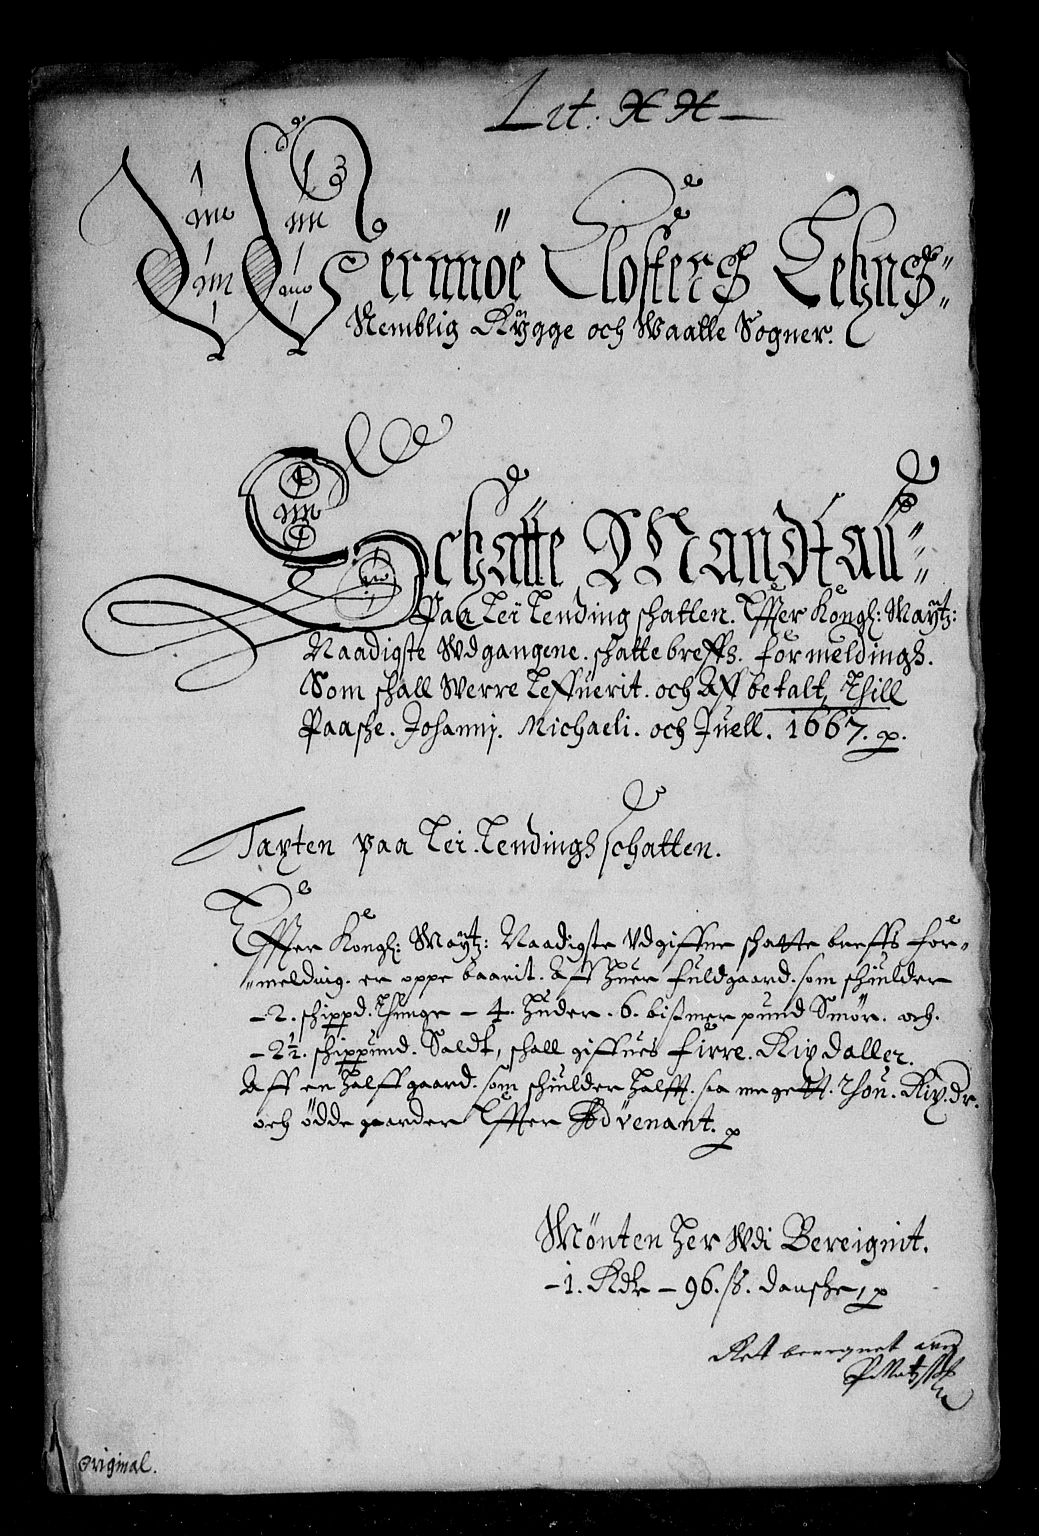 Lit. XX
Wernnöe Closters Lehns
Nemblig Rygge och Waatle Sogner.
Schatte Mandtall
Paa Lei Lending schatten. Effter Kongl: Maytz:
Naadigste Wdgangene. schatte breffs. formeldings.
Som schall Werre Leffuerit. och Aff betalt, Thill
Paasche. Johannj. Michaeli. och Juell. 1667. p.
Taxten paa Lei. Lendings schatten.
Effter Kongl: Maytz: Naadigste Vdgiffne schatte breffs for-
melding. er oppe baarit. Aff huer fuldgaard. som schulder
- 2. schippd. Thunge - 4. Huder. 6. bismer pund Smör. och.
- 2½. schippund. Saldt, schall giffues firre. Rix daller.
Aff en halff gaard. som schulder halfft. saa megett. Thou. Rix.dr.
och ödde gaarder Effter Advenant. p
Mönten her Wdi Bereignit.
- 1. Rdr - 96. ß. dansche, p
Rett beregnet
Original.